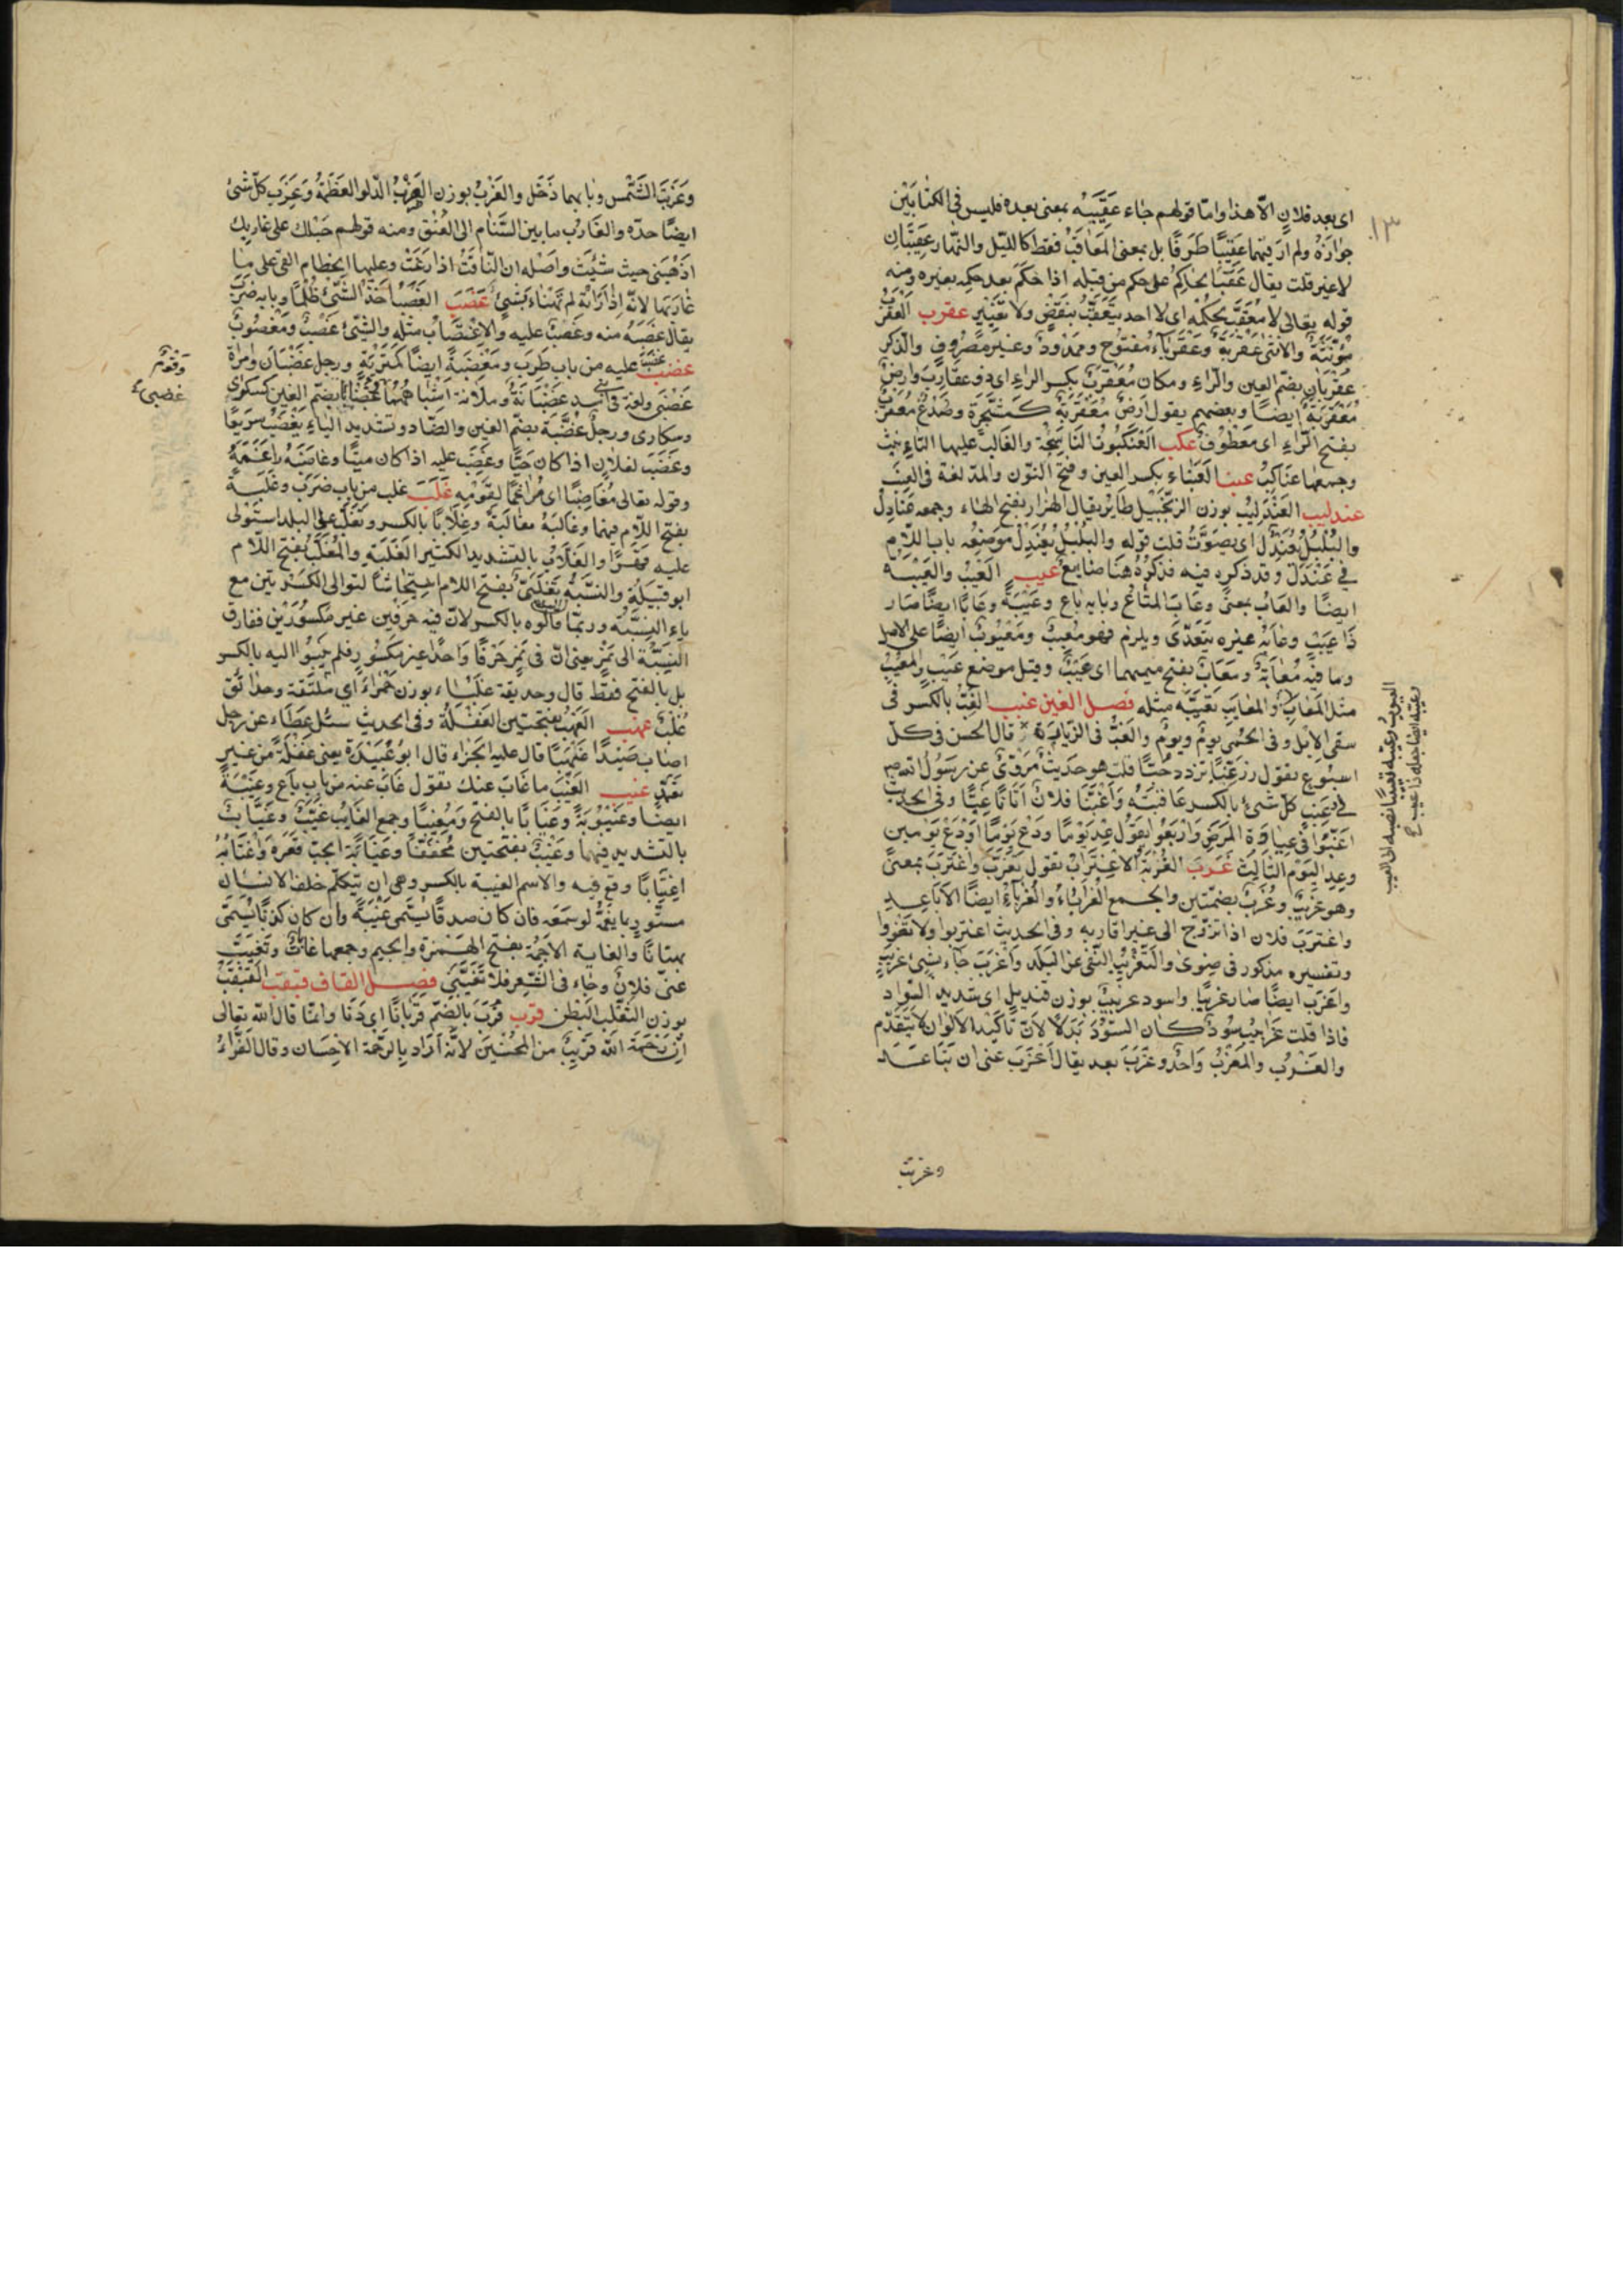 ١٣
اى بعد فلان الّا هذا وامّا قولهم جاء عَقِيبَه بمعنى بعده فليس فى الكتابَيْن
جوازه ولم ار فيهما عَقِيبًا ظَرفًا بل بمعنى المُعَاقِب فقط كالليل والنّهار عقيبان
لا غير قلت يقال عَقَّبَ الحاكِمُ على حكم من قبله اذا حَكَمَ بعد حكمه بغيره ومنه
قوله تعالى لا مُعَقِّبَ لِحُكْمِه اى لا احد يَتَعقَّبُ بنقض ولا تغيير عقرب العَقْرَبُ
مُؤنّثة والانثى عَقْرَبَة وعَقْرَبَاء مفتوح وممدود وغير مصروف والذّكر
عُقْرُبَان بضمّ العين والرّاء ومكان مُعَقْرِبٌ بكسر الراء اى ذو عقارب وارض
مُعَقْرِبَة ايضًا وبعضهم يقول ارض مُعَقْرَبَة كمشجرة وصُدْغٌ مُعَقْرَبٌ
بفتح الرّاء اى معطوف عكب العَنْكَبُوت النّاسِجَة والغالب عليها التّانيث
وجمعها عَنَاكِب عنب العِنَبَاء بكسر العين وفتح النّون والمدّ لغة فى العِنَب
عندليب العَنْدَلِيب بوزن الزّنجبيل طائر يقال الهزار بفتح الهاء وجمعه عَنَادِل
والبُلْبُلُ يُعَنْدِل اى يصوّت قلت قوله والبلبل يُعَنْدِل موضعه باب اللّام
فى عَنْدَل وقد ذكره فيه فذكره هنا ضايع عيب العَيْب والعَيْبَة
ايضًا والعَاب بمعنى وعَابَ المتاع وبابه باع وعَيْبَة وعَابًا ايضًا صار
ذا عيب وعَابَه غيره يتعدّى ويلزم فهو مَعِيبٌ ومَعْيُوبٌ ايضًا على الاصل
وما فيه مَعَابَة ومَعَاب بفتح ميمهما اى عَيْبٌ وقيل موضع عَيْب والمَعِيبُ
مثل المَعَاب والمعايب تعيّبه مثله فصل الغين غبب الغِبُّ بالكسر فى
سقى الابل وفى الحُمّى يومٌ ويومٌ والغِبُّ فى الزّيارة قال الحسن فى كلّ
اسبوع يقول زُرْ غِبًّا تزدد حُبًّا قلت هو حديث مروىّ عن رسول الله صم
وغِبّ كلّ شئ بالكسر عاقبته واَغَبَّنَا فلان اتانا غِبًّا وفى الحديث
اَغِبُّوا فى عيادة المريض واَرْبِعُوا يقول عُد يومًا ودَعْ يومًا اودَعْ يومين
وعُدِ اليوم الثّالث غرب الغُرْبَة الاغتراب تقول تغرّب واغترب بمعنى
وهو غريب وغُرُبٌ بضمّتين والجمع الغُرَبَاءُ والغُرَبَاء ايضًا الاباعد
واغترب فلان اذا تزوّج الى غير اقاربه وفى الحديث اغتربوا ولا تضووا
وتفسيره مذكور فى ضوى والتّغريب النّفى عن البلد واغرب جاء بشئ غريب
واغرب ايضًا صار غريبًا واسود غِربيب بوزن قنديل اى شديد السّواد
فاذا قلت غرابيب سود كان السّود بدلًا لانّ تاكيد الالوان لا يتقدّم
والغَرْب والمَغْرِبُ واحد وغَرَبَ بعد يقال اُغْرُبْ عنى ان تباعد
وغربت
العيوب وعيّبه تعييبًا نسبه الى العيب
وعيّبه ايضًا جعله ذا عيب ع
وغَرَبَت الشّمس وبابهما دَخَل والغَرْب بوزن الضّرب الدّلو العظيمة وغَرْبُ كلّ شئ
ايضًا حدّه والغَارِب ما بين السّنام الى العُنُق ومنه قولهم حَبْلك على غاربك
اذهبى حيث شِئْتِ واصله ان النّاقة اذا رعت وعليها الخطام القى على
غاربها لانّه اذا رَاَتْهُ لم يَهْنَاء بشئ غصب الغَصْب اخذ الشّئ ظلمًا وبابه ضرب
يقال غَصَبَهُ منه وغصب عليه والاغتصاب مثله والشّئ غَصْبٌ ومَغْصُوب
غضب غضب عليه من باب طرب ومَغْضَبَة ايضًا كمَتْرَبَة ورجل غَضْبَان وامراة
غَضْبَى ولغة فى بنى اسد غَضْبَانَة وملآنة اشباههما غُضَابَى بضمّ الغين كسكرى
وسكارى ورجل غُضُبَّة بضمّ الغين والضّاد وتشديد الباء يَغْضَبُ سريعًا
وغَضِبَ لفلان اذا كان حيًّا وغَضِبَ به اذا كان ميتًا وغاضَبَه راغمه
وقوله تعالى مُغَاضِبًا اى مُرَاغمًا لقومه غلب غلب من باب ضرب وغَلَبَة
بفتح اللّام فيهما وغالبه مغالبة وغِلَابًا بالكسر وتَغَلَّب على البلد استولى
عليه قهرًا والغَلَّابُ بالتّشديد الكثير الغَلَبَة والمُغَلَّب بفتح اللّام
ابو قبيلة والنّسبة تَغْلَبِىّ بفتح اللام استيحاشًا لتوالى الكسرتين مع
ياء النّسبة وربّما قالوه بالكسر لانّ فيه حرفين غير مكسورين ففارق
النّسبة الى نَمِر يعنى انّ فى نمر حرفًا واحدًا غير مكسور فلم ينسبوا اليه بالكسر
بل بالفتح فقط قال وحديقة غَلْبَاء بوزن حمراء اى ملتفّة وحدائق
غُلْب غهب الغَهَب بفتحتين الغفلة وفى الحديث سئل عطاء عن رجل
اصاب صيدًا غَهَبًا قال عليه الجزاء قال ابو عبيدة يعنى غفلة من غير
تعمّد غيب الغَيْب ما غاب عنك تقول غاب عنه من باب باع وغَيْبَة
ايضًا وغَيْبُوبَة وغَيَابًا بالفتح ومَغِيبًا وجمع الغايب غُيَّب وغُيَّاب
بالتشديد فيهما وغَيَبٌ بفتحتين مخفّفًا وغَيَابَة الجبّ قعره واغتابه
اغتيابًا وقع فيه والاسم الغيبة بالكسر وهى ان يتكلّم خلف الانسان
مستور بما يغمّه لو سمعه فان كان صدقًا يسمّى غيبة وان كان كذبًا يسمّى
بهتانًا والغابة الاَجَمَة بفتح الهمزة والجيم وجمعها غاب وتغيّب
عنّى فلان وجاء فى الشّعر فلا تغيّبنى فصل القاف قبقب القَبْقَبُ
بوزن الثّعلب البطن قرب قَرُبَ بالضّمّ قُرْبَانًا اى دَنَا وانّما قال الله تعالى
اِنّ رَحْمَة الله قريب من المحسنين لانّه اراد بالرّحمة الاحسان وقال الفرّاء